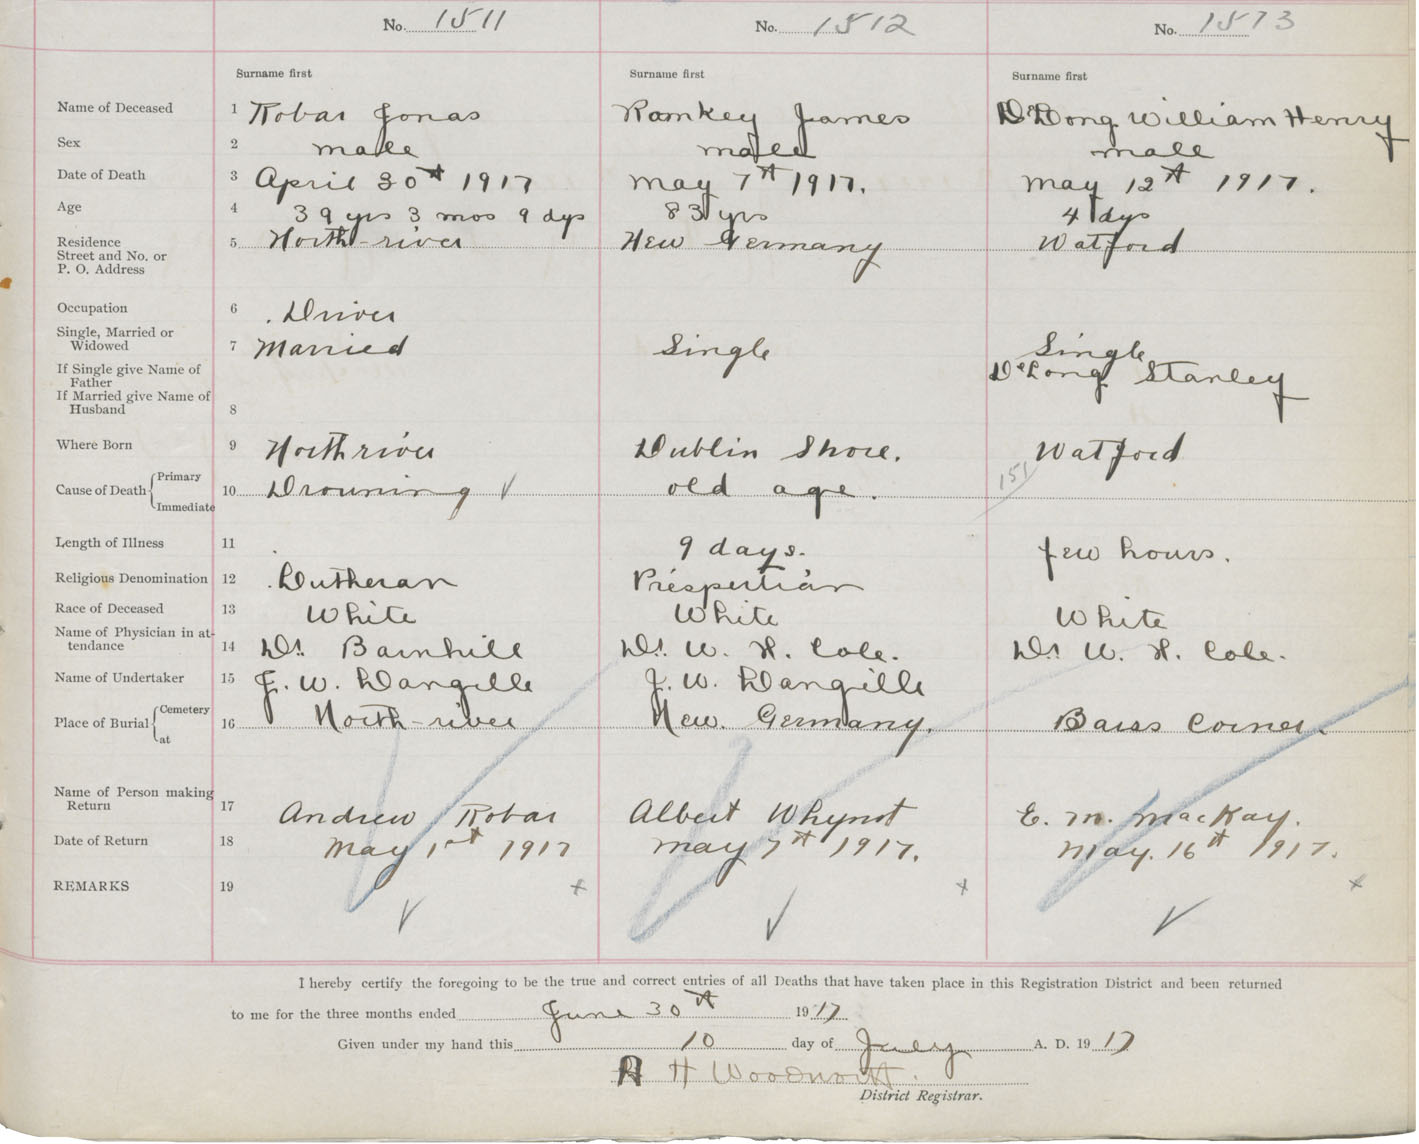 No. 1511 No. 1512 No. 1513
Surname first Surname first Surname first
Name of Deceased 1 Robar Jonas Ramkey James DeLong William Henry
Sex 2 male male male
Date of Death 3 April 30th 1917 May 7th 1917. May 12th 1917.
Age 4 39 yrs 3 mos 9 dys 83 yrs 4 dys
Residence 5 North-river New Germany Watford
Street and No. or
P. O. Address
Occupation 6 . Driver
Single, Married or
Widowed 7 Married Single Single
If Single give Name of DeLong Stanley
Father
If Married give Name of
Husband 8
Where Born 9 North river Dublin Shore. Watford
Cause of Death Primary 151
10 Drouning ✓ old age.
Immediate
Length of Illness 11 9 days. few hours.
Religious Denomination 12 Lutheran Prespertian
Race of Deceased 13 White White White
Name of Physician in at-
tendance 14 Dr. Barnhill Dr. W. H. Cole. Dr. W. H. Cole.
Name of Undertaker 15 J. W. Dangille J. W. Dangille
Place of Burial Cemetery 16 North-river New Germany. Barss Corner.
at
Name of Person making
Return 17 Andrew Robar Albert Whynot E. M. MacKay.
Date of Return 18 May 1st 1917 May 7th 1917. May. 16th 1917.
REMARKS 19 x x x
✓ ✓ ✓
I hereby certify the foregoing to be the true and correct entries of all Deaths that have taken place in this Registration District and been returned
to me for the three months ended June 30th 1917
Given under my hand this 10 day of July A. D. 1917
R H Woodworth.
District Registrar.